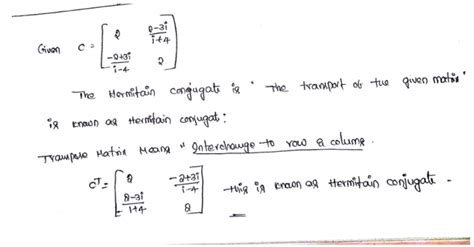 Given C = [ 2 2-3i/i+4
-2+3i/i-4 2 ]
The Hermitain conjugate is " The transport of the given matrix"
is known as Hermitain conjugat:
Transpose Matrix Means " Interchange to row & column.
C^T = [ 2 -2+3i/i-4
2-3i/i+4 2 ] this is known as Hermitain conjugate.